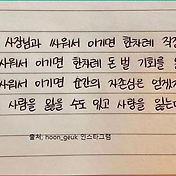 사장님과 싸워서 이기면 한차례 직장
싸워서 이기면 한차례 돈 벌 기회를
싸워서 이기면 순간의 자존심은 얻게지
사람을 잃을 수도 있고 사랑을 잃는다
출처, hoon_geuk 인스타그램